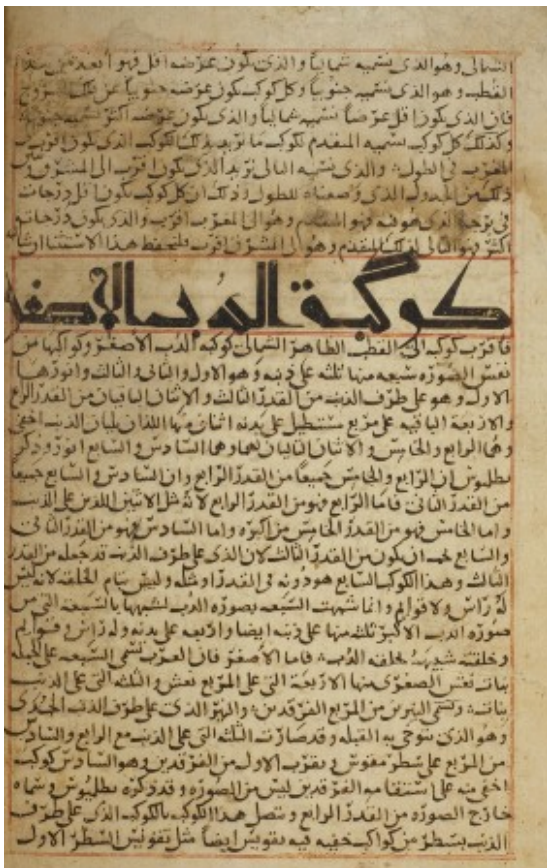 الشمالى وهو الذى نسميه شماليا والذى يكون عرضه اقل فهو ابعد من هذا
القطب وهو الذى نسميه جنوبيا وكل كوكب يكون عرضه جنوبيا عن فلك البروج
فان الذى يكون اقل عرضا نسميه شماليا والذى يكون عرضه اكثر نسميه جنوبيا
وكذلك كل كوكب نسميه المتقدم لكوكب ما نريد بذلك الكوكب الذى يكون اقرب الى
المغرب فى الطول والذى نسميه التالى نريد الذى يكون اقرب الى المشرق وتبين
ذلك من الجدول الذى وضعناه للطول وذلك ان كل كوكب يكون اقل درجات
فى برجه الذى هو فيه فهو المتقدم وهو الى المغرب اقرب والذى يكون درجاته
اكثر فهو التالى لذلك المتقدم وهو الى المشرق اقرب فلتحفظ هذا الاستثنا ان شا الله
كوكبة الدب الاصغر
فاقرب كوكبه الى القطب الظاهر الشمالى كوكبه الدب الاصغر وكواكبها من
نفس الصوره سبعه منها ثلثه على ذنبه وهو الاول والثانى والثالث وانورها
الاول وهو على طرف الذنب من القدر الثالث والاثنان الباقيان من القدر الرابع
والاربعة الباقيه على مربع مستطيل على بدنه اثنان منها اللذان يليان الذنب اخفى
وهما الرابع والخامس والاثنان التاليان لهما وهما السادس والسابع انور وذكر
بطلميوس ان الرابع والخامس جميعا من القدر الرابع وان السادس والسابع جميعا
من القدر الثانى فاما الرابع فهو من القدر الرابع لانه مثل الاثنين اللذين على الذنب
واما الخامس فهو من القدر الخامس من اكبره واما السادس فهو من القدر الثانى
والسابع يجب ان يكون من القدر الثالث لان الذى على طرف الذنب قد جعله من القدر
الثالث وهذا الكوكب السابع هو دونه فى القدر او مثله وليس بتام الخلقه لانه ليس
له راس ولا قوايم وانما شبهت السبعه بصوره الدب لشبهها بالسبعه التى من
صوره الدب الاكبر ثلثه منها على ذنبه ايضا واربعه على بدنه وله راس وقوايم
وخلقته شبيهه بخلقه الدب فاما الاصغر فان العرب تسمى السبعه على الجمله
بنات نعش الصغرى منها الاربعة التى على المربع نعش والثلثه التى على الذنب
بنات وتسمى النيرين من المربع الفرقدين والنير الذى على طرف الذنب الجدى
وهو الذى يتوخى به القبله وقد صارت الثلثه التى على الذنب مع الرابع والسادس
من المربع على سطر مقوس وبقرب الاول من الفرقدين وهو السادس كوكب
اخفى منه على استقامه الفرقدين ليس من الصوره وقد ذكره بطلميوس وسماه
خارج الصوره من القدر الرابع ويتصل هذا الكوكب بالكوكب الذى على طرف
الذنب بسطر من كواكب خفيه فيه تقويس ايضا مثل تقويس السطر الاول